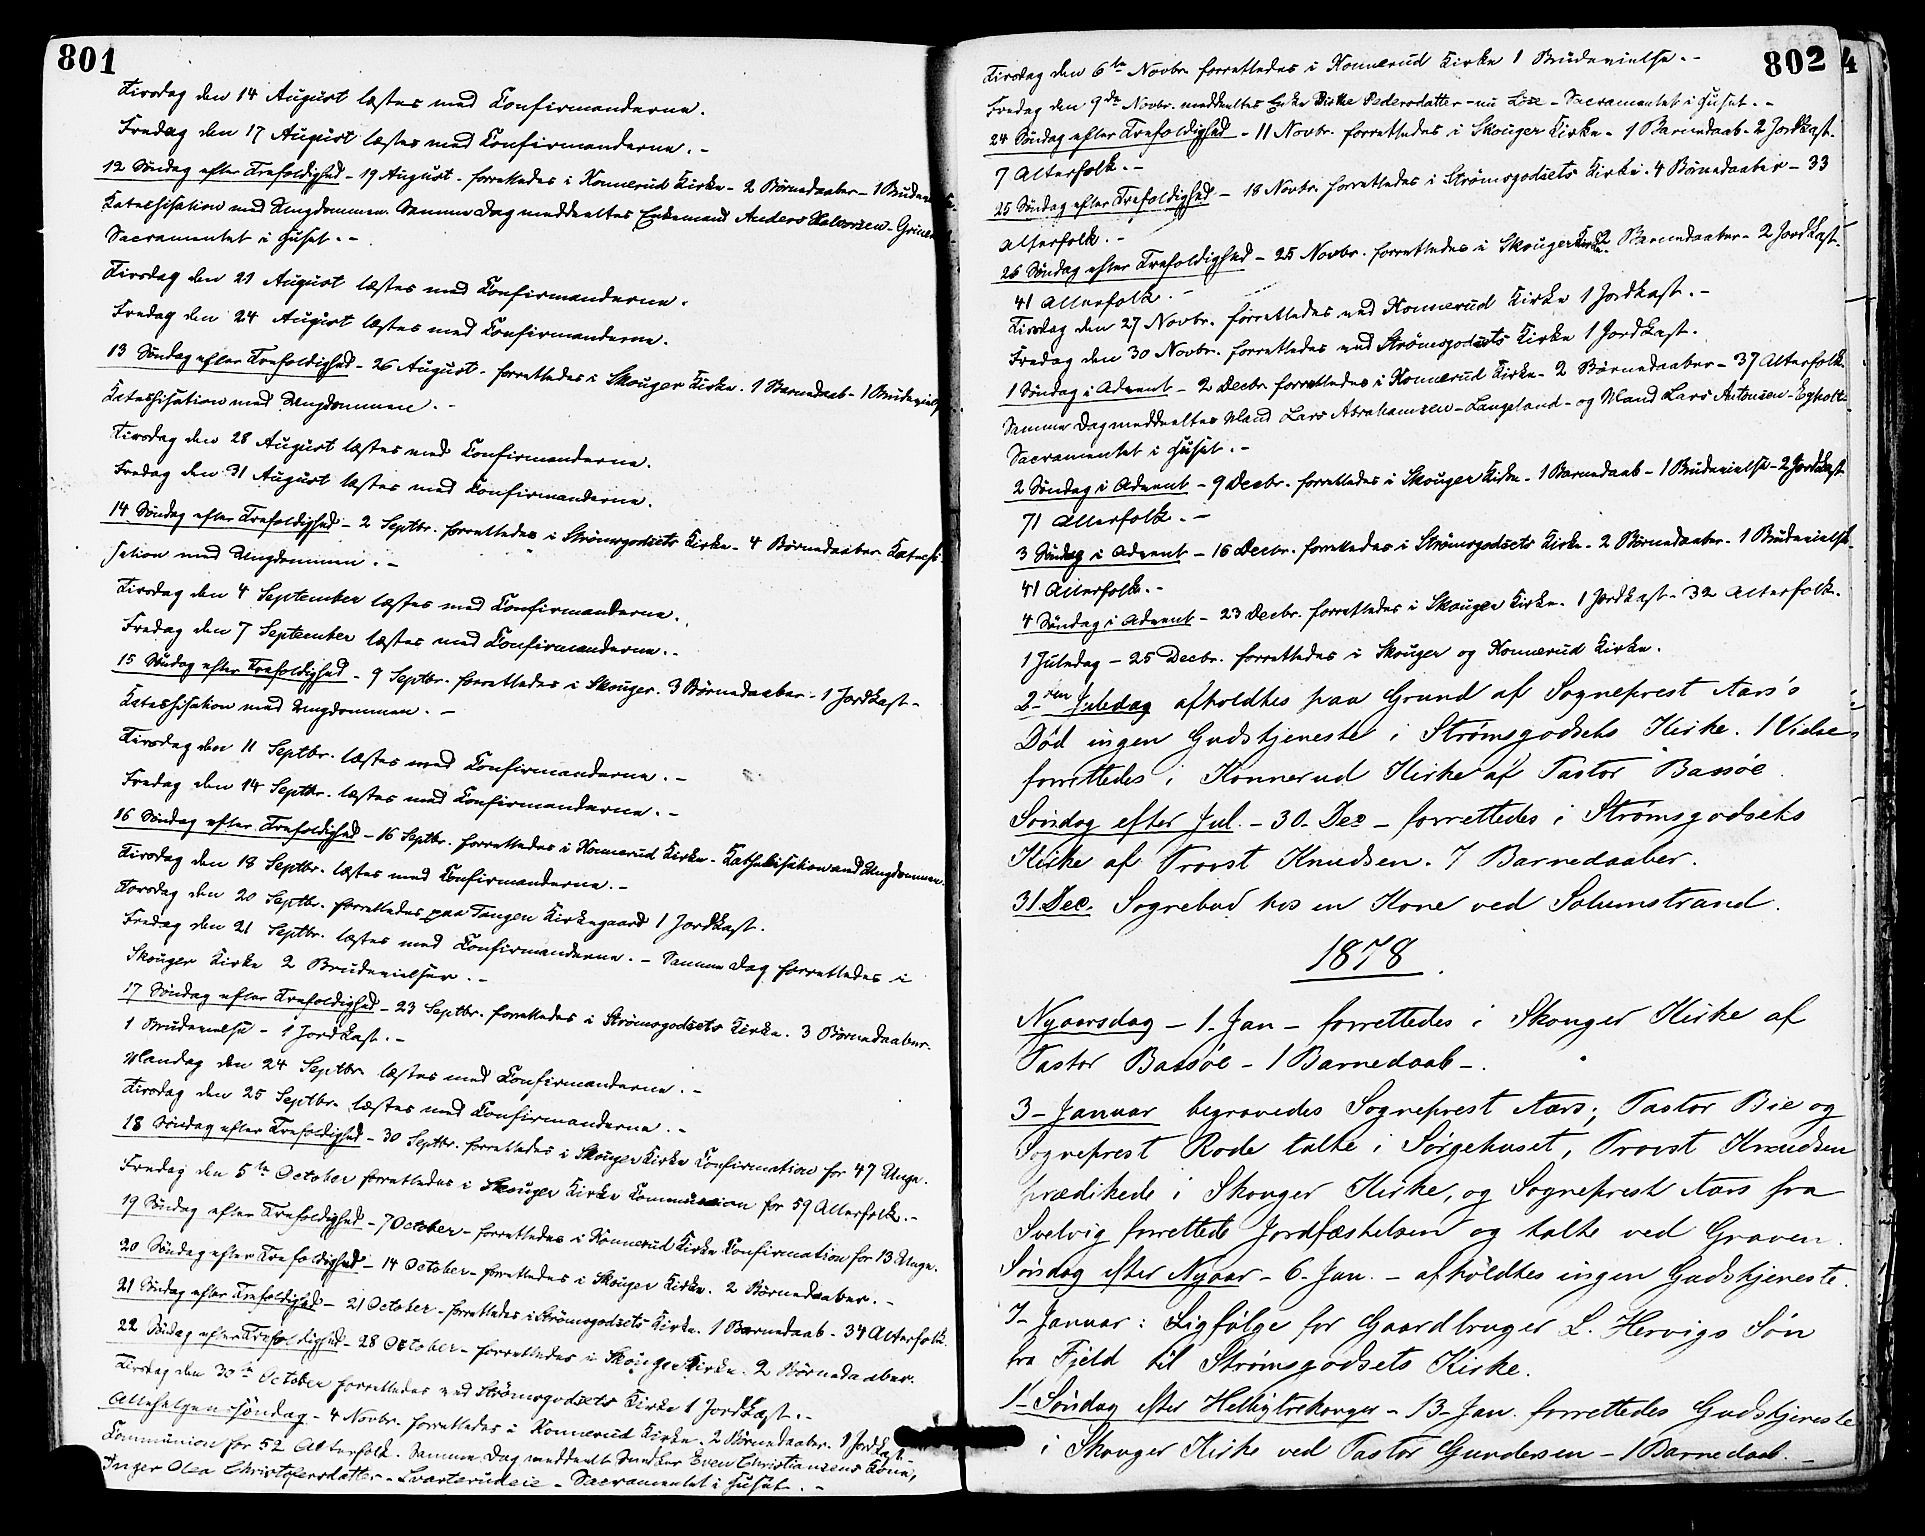 801
Tirsdag den 14 August læstes med Confirmanderne.
Fredag den 17 August læstes med Confirmanderne. -
12 Søndag efter Trefoldighed - 19 August - forrettedes i Konnerud Kirke - 2 Børnedaaber - 1 Brudevielse.
Katechisation med Ungdommen. Samme Dag meddeeltes Enkemand Anders Halvorsen - Grinen
Sacramentet i Huset. -
Tirsdag den 21 August læstes med Confirmanderne.
Fredag den 24 August læstes med Confirmanderne.
13 Søndag efter Trefoldighed - 26 August - forrettedes i Skouger Kirke. 1 Barnedaab - 1 Brudevielse
Katechisation med Ungdommen. -
Tirsdag den 28 August læstes med Confirmanderne.
Fredag den 31 August læstes med Confirmanderne.
14 Søndag efter Trefoldighed - 2 Septbr. forrettedes i Strømsgodsets Kirke - 4 Børnedaaber Katechi-
sation med Ungdommen. -
Tirsdag den 4 September læstes med Confirmanderne.
Fredag den 7 September læstes med Confirmanderne. -
15 Søndag efter Trefoldighed - 9 Septbr. forrettedes i Skouger. 3 Børnedaaber - 1 Jordkast -
Katechisation med Ungdommen. -
Tirsdag den 11 Septbr. læstes med Confirmanderne. -
Fredag den 14 Septbr. læstes med Confirmanderne. -
16 Søndag efter Trefoldighed - 16 Septbr. forrettedes i Konnerud Kirke - Kathekisation med Ungdommen.
Tirsdag den 18 Septbr. læstes med Confirmanderne. -
Torsdag den 20 Septbr. forrettedes paa Tangen Kirkegaard 1 Jordkast.
Fredag den 21 Septbr. læstes med Confirmanderne. - Samme Dag forrettedes i
Skouger Kirke 2 Brudevielser. -
17 Søndag efter Trefoldighed - 23 Septbr. forrettedes i Strømsgodsets Kirke. 3 Børnedaaber.
1 Brudevielse - 1 Jordkast. -
Mandag den 24 Septbr. læstes med Confirmanderne. -
Tirsdag den 25 Septbr. læstes med Confirmanderne. -
18 Søndag efter Trefoldighed - 30 Septbr. forrettedes i Skouger Kirke Confirmation for 47 Unge.
Fredag den 5te October forrettedes i Skouger Kirke Communion for 59 Alterfolk. -
19 Søndag efter Trefoldighed - 7 October - forrettedes i Konnerud Kirke Confirmation for 13 Unge.
20 Søndag efter Trefoldighed - 14 October - forrettedes i Skouger Kirke. 2 Børnedaaber. -
21 Søndag efter Trefoldighed - 21 October - forrettedes i Strømsgodsets Kirke. 1 Barnedaab - 34 Alterfolk.
22 Søndag efter Trefoldighed - 28 October - forrettedes i Skouger Kirke. 2 Børnedaaber.
Tirsdag den 30te October forrettedes ved Strømsgodsets Kirke 1 Jordkast. -
Allehelgen søndag - 4 Novbr. forrettedes i Konnerud Kirke. 2 Børnedaaber. 1 Jordkast.
Communion for 52 Alterfolk. Samme Dag meddeelt Even Christiansens Kone,
Inger Olea Christofersdatter - Sacramentet i Huset. -
802
4
Tirsdag den 6te Novbr. forrettedes i Konnerud Kirke 1 Brudevielse. -
Fredag den 9de Novbr. meddeeltes Enke Pedersdatter - Sacramentet i Huset. -
24 Søndag efter Trefoldighed - 11 Novbr. forrettedes i Skouger Kirke - 1 Barnedaab - 2 Jordkast.
7 Alterfolk. -
25 Søndag efter Trefoldighed - 18 Novbr. forrettedes i Strømsgodsets Kirke. 4 Børnedaaber - 33
Alterfolk. -
26 Søndag efter Trefoldighed - 25 Novbr. forrettedes i Skouger Kirke 2 Barnedaaber - 2 Jordkast.
41 Alterfolk. -
Tirsdag den 27 Novbr. forrettedes ved Konnerud Kirke 1 Jordkast. -
Fredag den 30 Novbr. forrettedes ved Strømsgodsets Kirke 1 Jordkast.
1 Søndag i Advent - 2 Decbr. forrettedes i Konnerud Kirke - 2 Børnedaaber - 37 Alterfolk
Samme Dag meddeeltes Mand Lars Abrahamsen - Langeland - og Mand Lars Antonsen - Egholt
Sacramentet i Huset. -
2 Søndag i Advent - 9 Decbr. forrettedes i Skouger Kirke - 1 Barnedaab - 1 Brudevielse - 2 Jordkast
71 Alterfolk. -
3 Søndag i Advent - 16 Decbr. forrettedes i Strømsgodsets Kirke - 2 Børnedaaber - 1 Brudevielse.
41 Alterfolk. -
4 Søndag i Advent - 23 Decbr. forrettedes i Skouger Kirke. 1 Jordkast - 32 Alterfolk.
1 Juledag - 25 Decbr. forrettedes i Skouger og Konnerud Kirke.
2den Juledag afholdtes paa Grund af Sogneprest Aars's
Død ingen Gudstjeneste i Strømsgodsets Kirke. 1 Vielse
forrettedes i Konnerud Kirke af Pastor Bassøe.
Søndag efter Jul. - 30. Dec - forrettedes i Strømsgodsets
Kirke af Provst Knudsen. 7 Barnedaaber.
31. Dec. Sognebud hos en Kone ved Solumstrand.
1878.
Nyaarsdag - 1. Jan - forrettedes i Skouger Kirke af
Pastor Bassøe - 1 Barnedaab -.
3 - Januar begravedes Sogneprest Aars; Pastor Bie og
Sogneprest Rode talte i Sørgehuset, Provst Knudsen
prædikede i Skouger Kirke, og Sogneprest Aars fra
Svelvig forrettede Jordfæstelsen og talte ved Graven.
Søndag efter Nyaar - 6. Jan. - afholdtes ingen Gudstjeneste.
7 - Januar: Ligfølge for Gaardbruger L. Hervigs Søn
fra Fjeld til Strømsgodsets Kirke.
1 - Søndag efter Helligtrekonger - 13 - Jan. forrettedes Gudstjeneste
i Skouger Kirke ved Pastor Gundersen - 1 Barnedaab. -